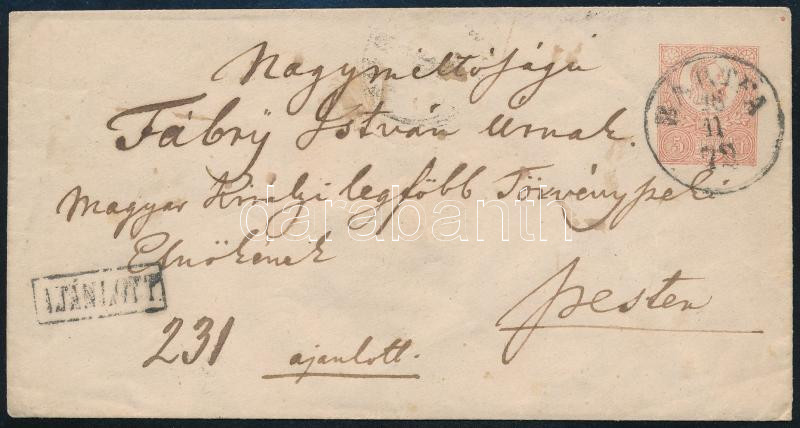 Nagyméltóságú
Fábry István Urnak.
Magyar Királyi legföbb Törvényszéki
Elnökének
Pesten
231 ajanlott.
AJÁNLOTT
BARTFA
11
72
5
darabanth